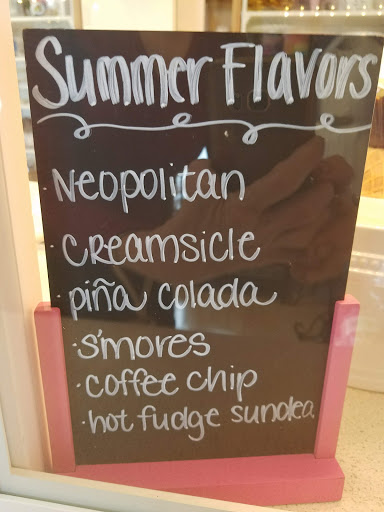 Summer Flavors
· Neopolitan
· creamsicle
· piña colada
· s'mores
· coffee chip
· hot fudge sundea